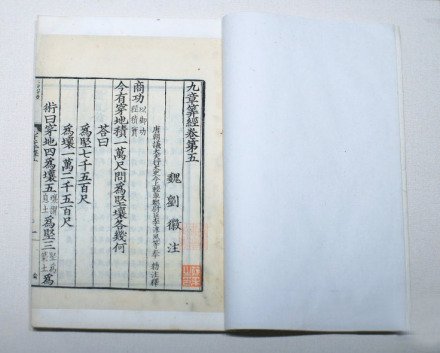 九章筭經卷第五
魏劉徽注
唐朝議大夫行太史令上輕車都尉臣李淳風等奉 勑注釋
商功以御功程積實
今有穿地積一萬尺問為堅壤各幾何
荅曰
為堅七千五百尺
為壤一萬二千五百尺
術曰穿地四為壤五壤謂息土為堅三堅謂築土為